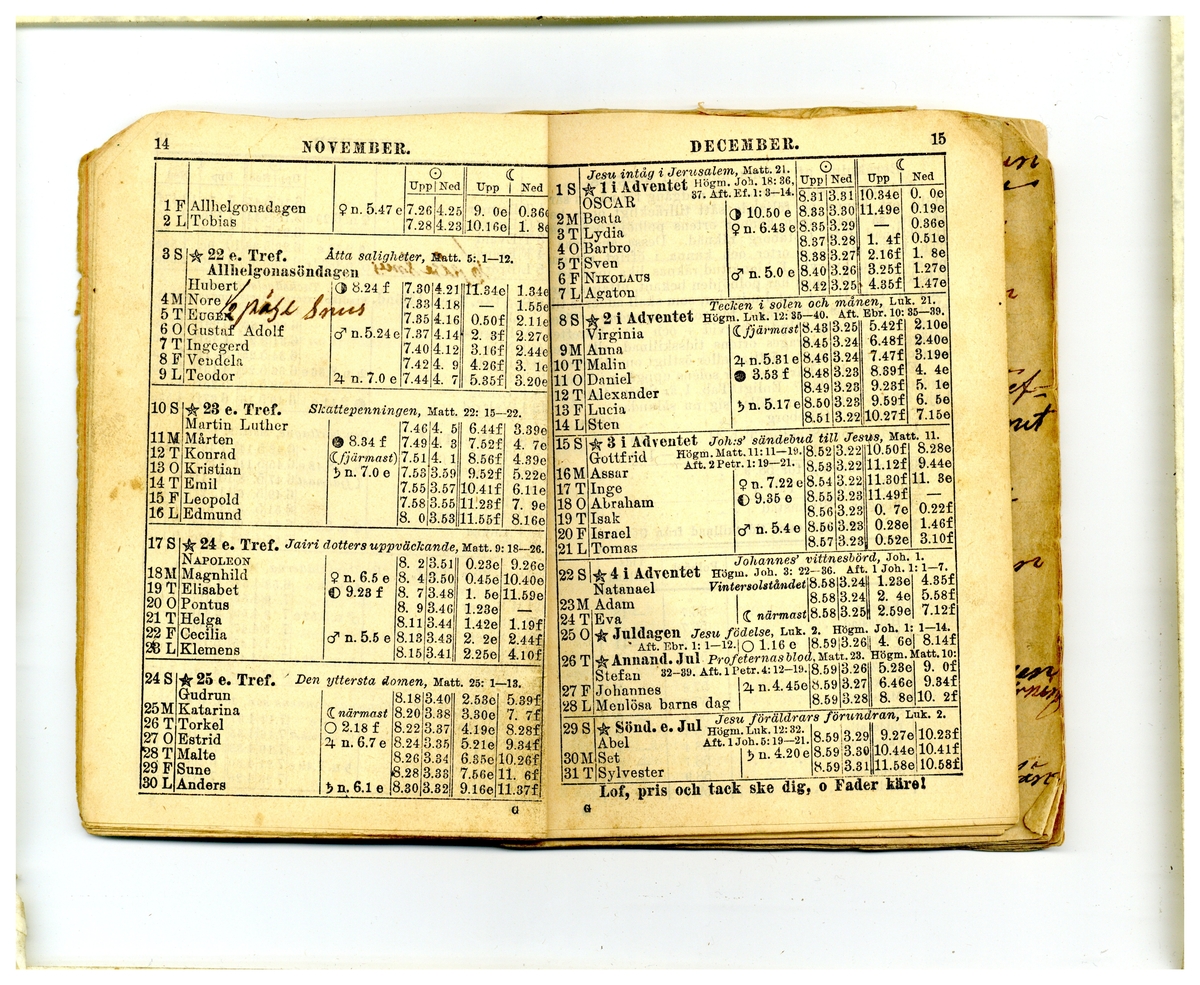 14 NOVEMBER.
☉ ☾
Upp Ned Upp Ned
1 F Allhelgonadagen ♀ n. 5.47 e 7.26 4.25 9. 0e 0.36e
2 L Tobias 7.28 4.23 10.16e 1. 8e
3 S ★ 22 e. Tref. Åtta saligheter, Matt. 5: 1—12.
Allhelgonasöndagen
Hubert ◑ 8.24 f 7.30 4.21 11.34e 1.34e
4 M Nore 7.33 4.18 — 1.55e
5 T EUGEN 7.35 4.16 0.50f 2.11e
½ påse Snus
6 O Gustaf Adolf ♂ n. 5.24 e 7.37 4.14 2. 3f 2.27e
7 T Ingegerd 7.40 4.12 3.16f 2.44e
8 F Vendela 7.42 4. 9 4.26f 3. 1e
9 L Teodor ♃ n. 7.0 e 7.44 4. 7 5.35f 3.20e
10 S ★ 23 e. Tref. Skattepenningen, Matt. 22: 15—22.
Martin Luther 7.46 4. 5 6.44f 3.39e
11 M Mårten ● 8.34 f 7.49 4. 3 7.52f 4. 7e
12 T Konrad (☾fjärmast) 7.51 4. 1 8.56f 4.39e
13 O Kristian ♄ n. 7.0 e 7.53 3.59 9.52f 5.22e
14 T Emil 7.55 3.57 10.41f 6.11e
15 F Leopold 7.58 3.55 11.23f 7. 9e
16 L Edmund 8. 0 3.53 11.55f 8.16e
17 S ★ 24 e. Tref. Jairi dotters uppväckande, Matt. 9: 18—26.
NAPOLEON 8. 2 3.51 0.23e 9.26e
18 M Magnhild ♀ n. 6.5 e 8. 4 3.50 0.45e 10.40e
19 T Elisabet ◐ 9.23 f 8. 7 3.48 1. 5e 11.59e
20 O Pontus 8. 9 3.46 1.23e —
21 T Helga 8.11 3.44 1.42e 1.19f
22 F Cecilia ♂ n. 5.5 e 8.13 3.43 2. 2e 2.44f
23 L Klemens 8.15 3.41 2.25e 4.10f
24 S ★ 25 e. Tref. Den yttersta domen, Matt. 25: 1—13.
Gudrun 8.18 3.40 2.53e 5.39f
25 M Katarina ☾ närmast 8.20 3.38 3.30e 7. 7f
26 T Torkel ○ 2.18 f 8.22 3.37 4.19e 8.28f
27 O Estrid ♃ n. 6.7 e 8.24 3.35 5.21e 9.34f
28 T Malte 8.26 3.34 6.35e 10.26f
29 F Sune 8.28 3.33 7.56e 11. 6f
30 L Anders ♄ n. 6.1 e 8.30 3.32 9.16e 11.37f
G
DECEMBER. 15
☉ ☾
Upp Ned Upp Ned
Jesu intåg i Jerusalem, Matt. 21.
1 S ★ 1 i Adventet Högm. Joh. 18: 36,
37. Aft. Ef. 1: 3—14.
OSCAR 8.31 3.31 10.34e 0. 0e
2 M Beata ◑ 10.50 e 8.33 3.30 11.49e 0.19e
3 T Lydia ♀ n. 6.43 e 8.35 3.29 — 0.36e
4 O Barbro 8.37 3.28 1. 4f 0.51e
5 T Sven 8.38 3.27 2.16f 1. 8e
6 F NIKOLAUS ♂ n. 5.0 e 8.40 3.26 3.25f 1.27e
7 L Agaton 8.42 3.25 4.35f 1.47e
Tecken i solen och månen, Luk. 21.
8 S ★ 2 i Adventet Högm. Luk. 12: 35—40. Aft. Ebr. 10: 35—39.
Virginia ☾ fjärmast 8.43 3.25 5.42f 2.10e
9 M Anna 8.45 3.24 6.48f 2.40e
10 T Malin ♃ n. 5.31 e 8.46 3.24 7.47f 3.19e
11 O Daniel ● 3.53 f 8.48 3.23 8.39f 4. 4e
12 T Alexander 8.49 3.23 9.23f 5. 1e
13 F Lucia ♄ n. 5.17 e 8.50 3.23 9.59f 6. 5e
14 L Sten 8.51 3.22 10.27f 7.15e
15 S ★ 3 i Adventet Joh:s' sändebud till Jesus, Matt. 11.
Gottfrid Högm. Matt. 11: 11—19. 8.52 3.22 10.50f 8.28e
Aft. 2 Petr. 1: 19—21.
16 M Assar 8.53 3.22 11.12f 9.44e
17 T Inge ♀ n. 7.22 e 8.54 3.22 11.30f 11. 3e
18 O Abraham ◐ 9.35 e 8.55 3.23 11.49f —
19 T Isak 8.56 3.23 0. 7e 0.22f
20 F Israel ♂ n. 5.4 e 8.56 3.23 0.28e 1.46f
21 L Tomas 8.57 3.23 0.52e 3.10f
Johannes' vittnesbörd, Joh. 1.
22 S ★ 4 i Adventet Högm. Joh. 3: 22—36. Aft. 1 Joh. 1: 1—7.
Natanael Vintersolståndet 8.58 3.24 1.23e 4.35f
23 M Adam 8.58 3.24 2. 4e 5.58f
24 T Eva ☾ närmast 8.58 3.25 2.59e 7.12f
25 O ★ Juldagen Jesu födelse, Luk. 2. Högm. Joh. 1: 1—14.
Aft. Ebr. 1: 1—12. ○ 1.16 e 8.59 3.26 4. 6e 8.14f
26 T ★ Annand. Jul Profeternas blod, Matt. 23. Högm. Matt. 10:
Stefan 32—39. Aft. 1 Petr. 4: 12—19. 8.59 3.26 5.23e 9. 0f
27 F Johannes ♃ n. 4.45e 8.59 3.27 6.46e 9.34f
28 L Menlösa barns dag 8.59 3.28 8. 8e 10. 2f
Jesu föräldrars förundran, Luk. 2.
29 S ★ Sönd. e. Jul Högm. Luk. 12: 32.
Abel Aft. 1 Joh. 5: 19—21. 8.59 3.29 9.27e 10.23f
30 M Set ♄ n. 4.20 e 8.59 3.30 10.44e 10.41f
31 T Sylvester 8.59 3.31 11.58e 10.58f
Lof, pris och tack ske dig, o Fader käre!
G